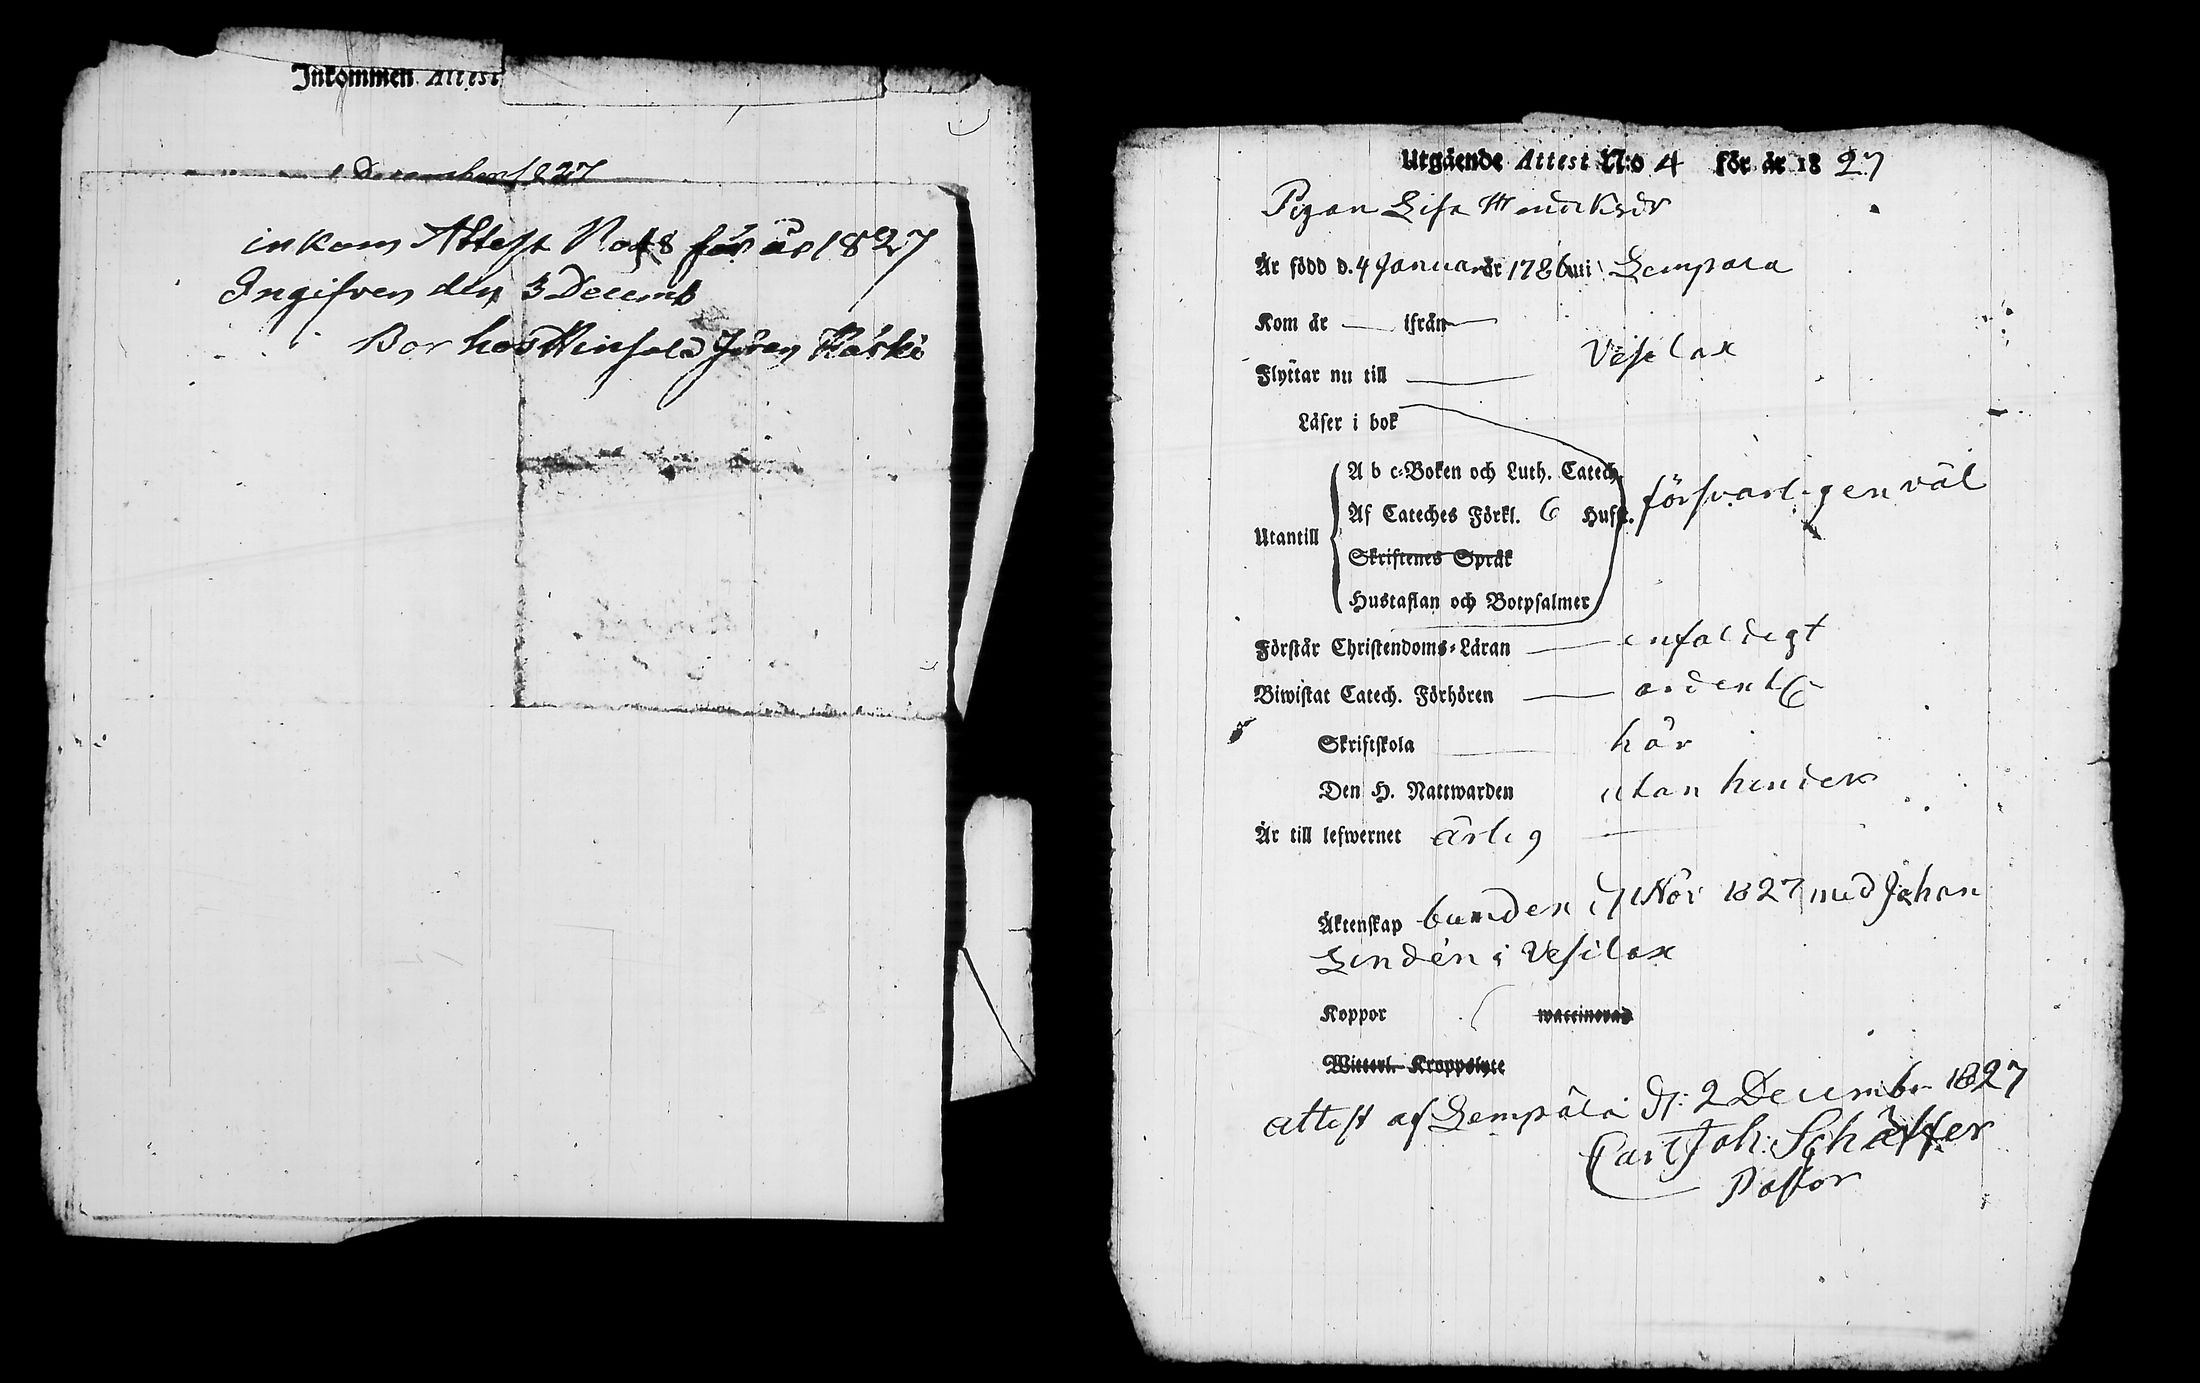 Inkommen Attest
December 1827
inkom Attest No 48 för år 1827
Ingifven den 3 Decemb
Bor hos Jöran
Utgående Attest N:o 4 för år 1827
Pigan Lisa Hendriksdr
Är född d. 4 Januari år 1786 uti Lempälä
Kom år — ifrån —
Vesilax
Flyttar nu till —
Läser i bok
A b c-Boken och Luth. Catech.
försvarligen väl
Af Cateches Förkl. 6 Hufst.
Utantill
Skriftenes Språk
Hustaflan och Botpsalmer
Förstår Christendoms-Läran — enfaldigt
Biwistat Catech. Förhören — ordentl.
Skriftskola — här
Den H. Nattwarden utan hinder
Är till lefwernet ärlig —
Äktenskap bunden Nov 1827 med Johan
Lindén i Vesilax
Koppor waccinerad
Witterl. Kroppslyte
attest af Lempälä d: 2 December 1827
Carl Joh: Schäffer
Pastor